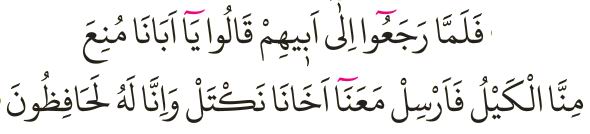 فَلَمَّا رَجَعُٓوا اِلٰٓى اَبٖيهِمْ قَالُوا يَٓا اَبَانَا مُنِعَ
مِنَّا الْكَيْلُ فَاَرْسِلْ مَعَنَٓا اَخَانَا نَكْتَلْ وَاِنَّا لَهُ لَحَافِظُونَ